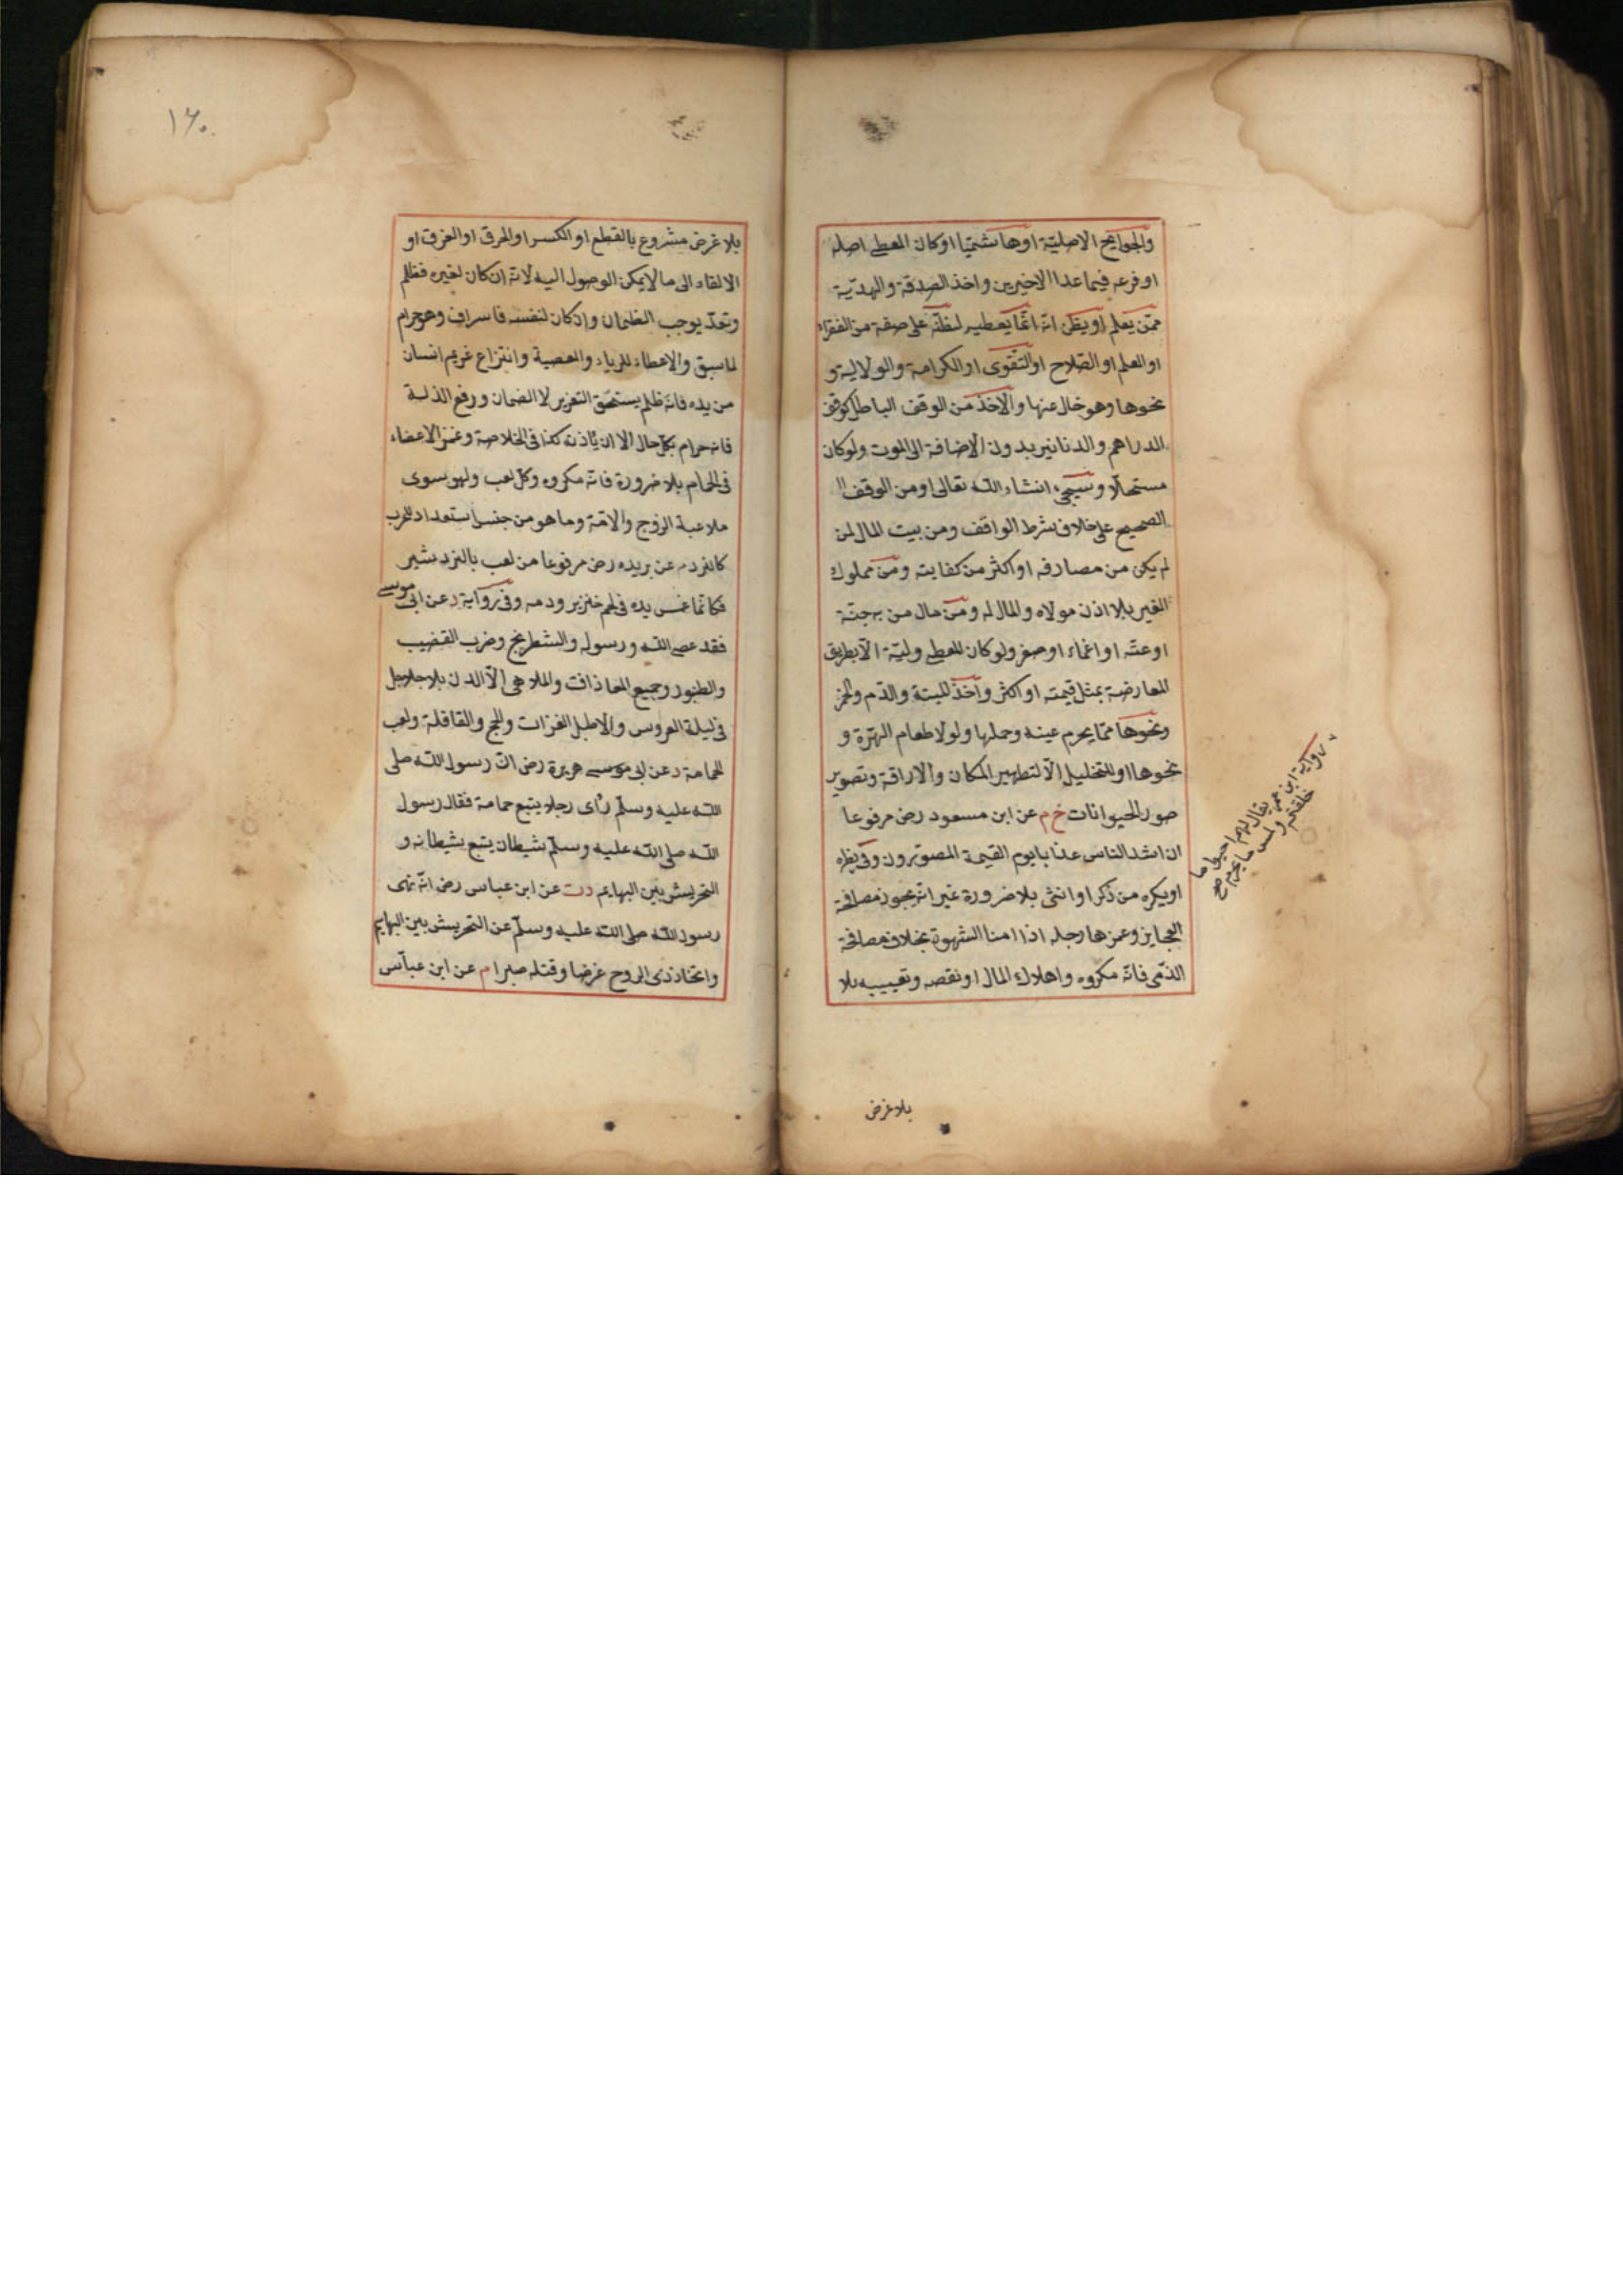 والحوايج الاصلية او هاشميا او كان المعطى اصله
او فرعه فيما عدا الاخيرين واخذ الصدقة والهدية
ممن يعلم او يظن انه انما يعطيه لظنه على صفة من الفقراء
او العلم او الصلاح او التقوى او الكرامة والولاية و
نحوها وهو خال عنها والاخذ من الوقف الباطل كوقف
الدراهم والدنانير بدون الاضافة الى الموت ولو كان
مستحلا وسيجئ انشاء الله تعالى او من الوقف ال
الصحيح على خلاف شرط الواقف ومن بيت المال لمن
لم يكن من مصارفه او اكثر من كفايته ومن مملوك
الغير بلا اذن مولاه والمال له ومن مال من به جنة
او عته او اغماء او صغر ولو كان المعطى وليه الا بطريق
المعارضة بمثل قيمته او اكثر واخذ الميتة والدم والخمر
ونحوها مما يحرم عينه وحملها ولو لاطعام الهرة و
نحوها او للتخليل الا لتطهير المكان والاراقة وتصوير
صور الحيوانات خ م عن ابن مسعود رض مرفوعا
ان اشد الناس عذابا يوم القيمة المصورون وفى
او يكره من ذكر او انثى بلا ضرورة غير انه يجوز مصافحة
العجايز وغمزها رجله اذا امنا الشهوة بخلاف مصافحة
الذمى فانه مكروه واهلاك المال او نقصه وتعييبه بلا
رواية ابن عمر يقال لهم احيوا ما
خلقتم ولمس ما يحرم صح
بلا غرض
١٦٠
بلا غرض مشروع بالقطع او الكسر او الحرق او الغرق او
الالقاء الى ما لا يمكن الوصول اليه لانه ان كان لغيره فظلم
وتعد يوجب الضمان وان كان لنفسه فاسراف وهو حرام
لما سبق والاعطاء للرياء والمعصية وانتزاع غريم انسان
من يده فانه ظلم يستحق التعزير لا الضمان ورفع الذلة
فانه حرام بكل حال الا ان ياذنه كذا فى الخلاصة وغمز الاعضاء
فى الحمام بلا ضرورة فانه مكروه وكل لعب ولهو سوى
ملاعبة الزوج والامة وما هو من جنس استعداد للحرب
كالنرد م عن بريده رض مرفوعا من لعب بالنرد شير
فكانما غمس يده فى لحم خنزير ودمه وفى رواية د عن ابى موسى
فقد عصى الله ورسوله والشطرنج وضرب القضيب
والطنبور وجميع المعاذات والملاهى الا الدف بلا جلاجل
فى ليلة العروس والا طبل الغزات والحج والقافلة ولعب
الحمامة د عن ابى موسى هريرة رض ان رسول الله صلى
الله عليه وسلم رأى رجلا يتبع حمامة فقال رسول
الله صلى الله عليه وسلم شيطان يتبع شيطانه و
التحريش بين البهايم د ت عن ابن عباس رض انه نهى
رسول الله صلى الله عليه وسلم عن التحريش بين البهايم
واتخاذ ذى الروح غرضا وقتله صبرا م عن ابن عباس